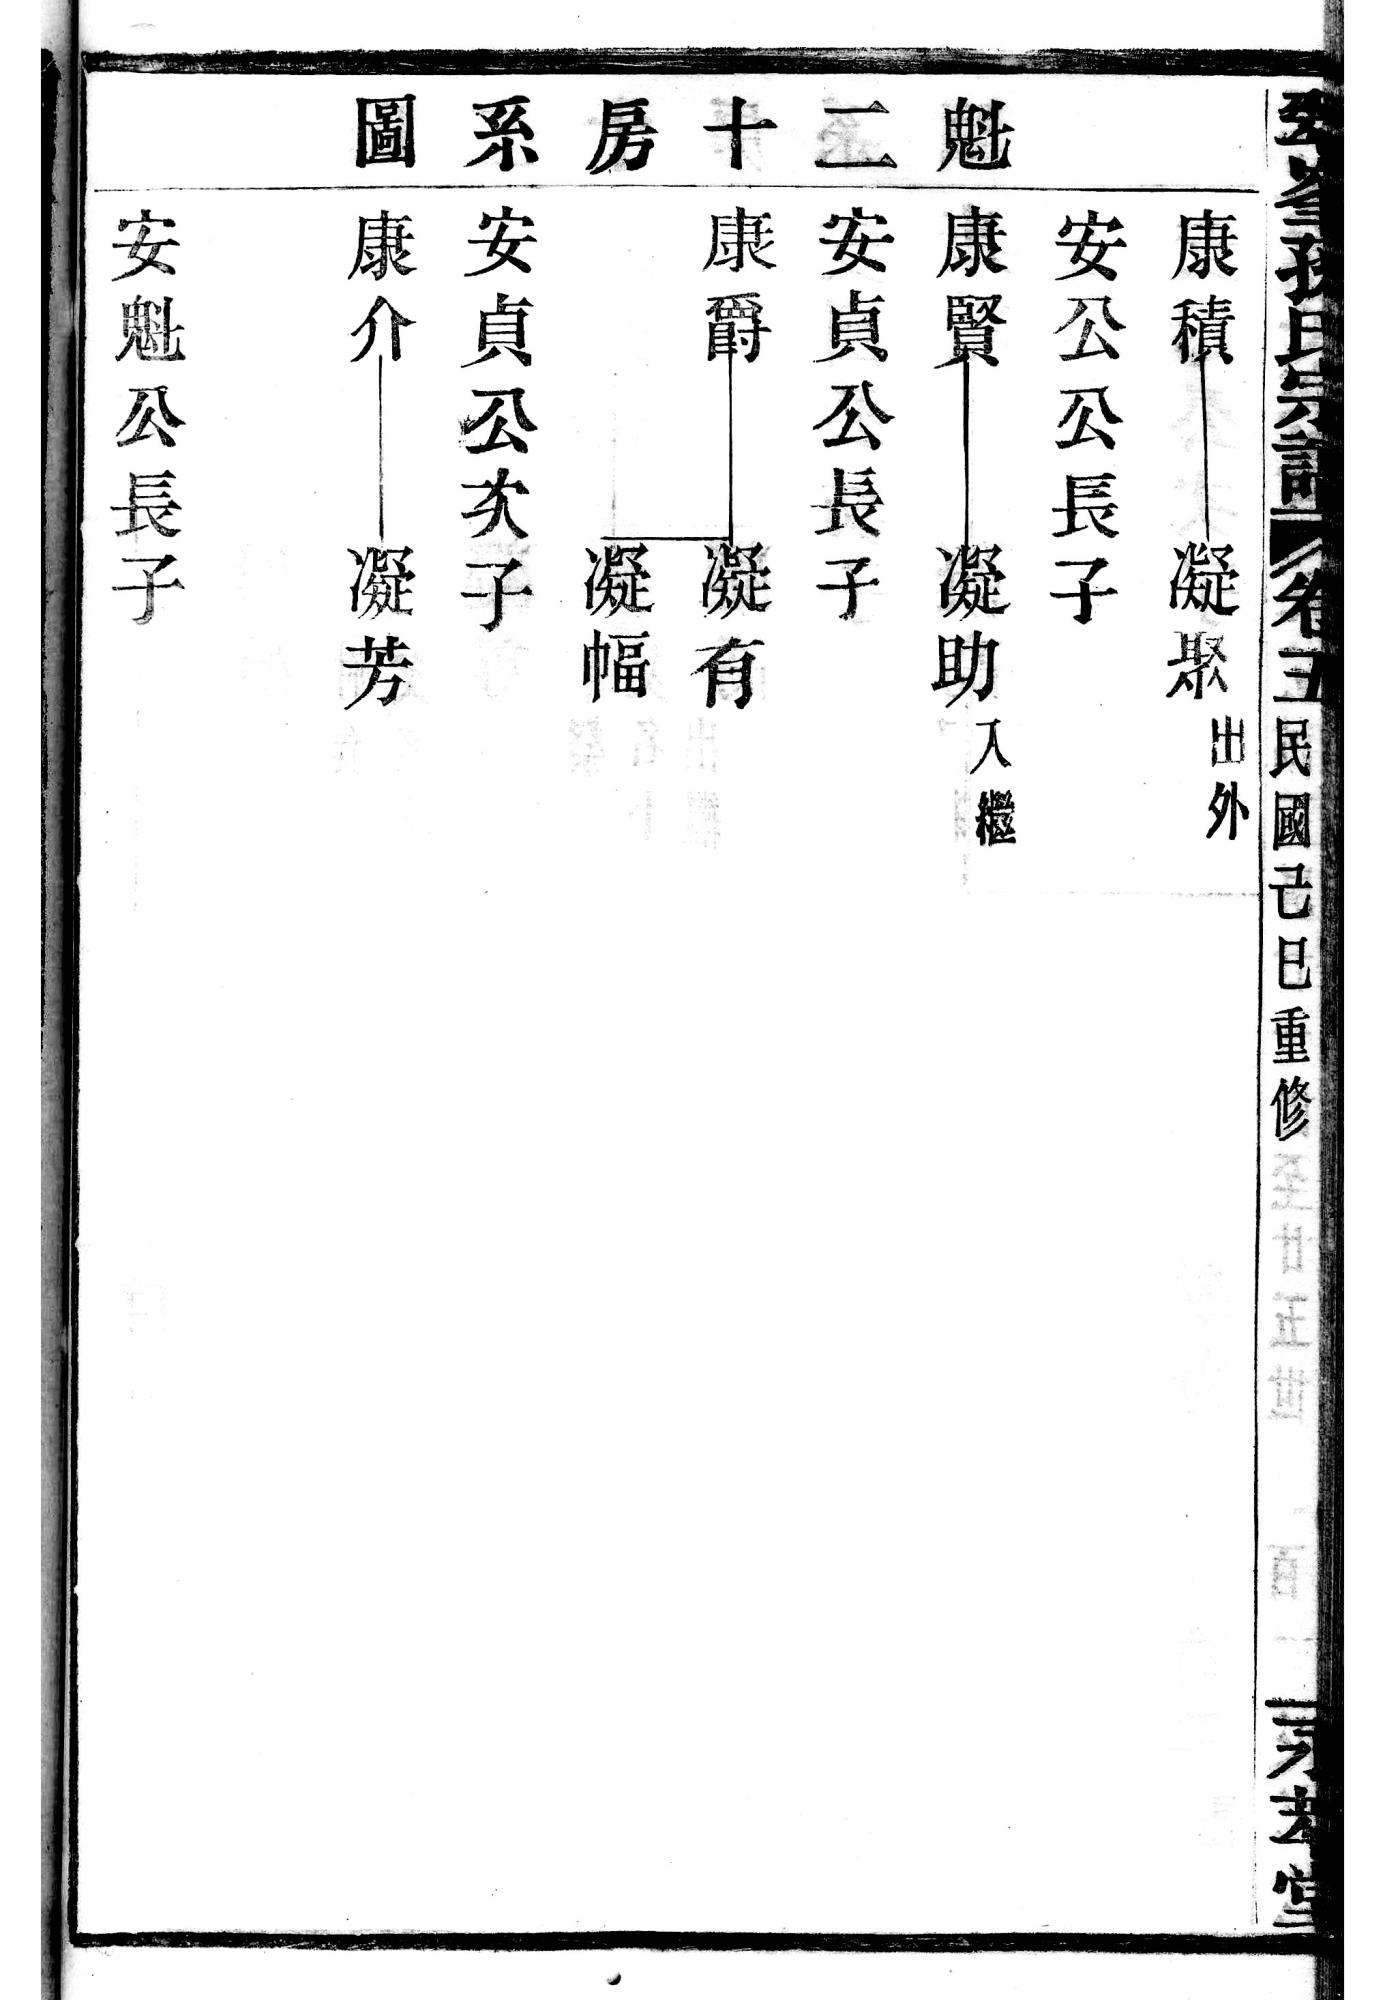 魁二十房系圖
康積
凝聚
出外
安公公長子
康賢
凝助
入繼
安貞公長子
康爵
凝有
凝幅
安貞公次子
康介
凝芳
安魁公長子
孫氏宗譜
卷五
民國己巳重修
堂